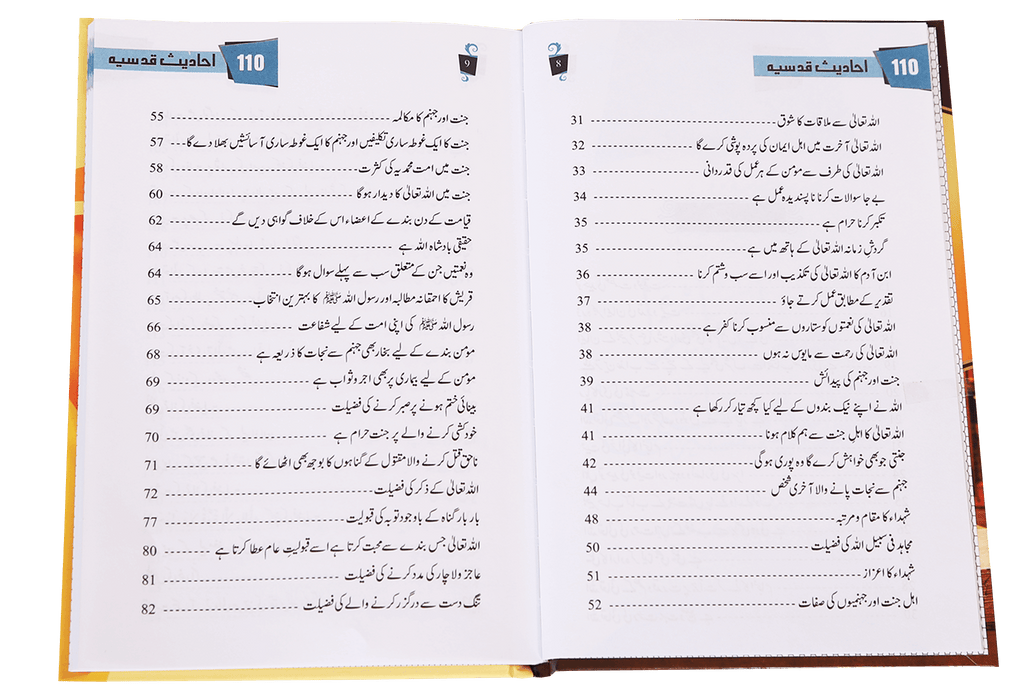 110 احادیث قدسیہ
8
اللہ تعالیٰ سے ملاقات کا شوق ------ 31
اللہ تعالیٰ آخرت میں اہل ایمان کی پردہ پوشی کرے گا ------ 32
اللہ تعالیٰ کی طرف سے مؤمن کے ہر عمل کی قدردانی ------ 33
بے جا سوالات کرنا ناپسندیدہ عمل ہے ------ 34
تکبر کرنا حرام ہے ------ 35
گردشِ زمانہ اللہ تعالیٰ کے ہاتھ میں ہے ------ 35
ابن آدم کا اللہ تعالیٰ کی تکذیب اور اسے سب وشتم کرنا ------ 36
تقدیر کے مطابق عمل کرتے جاؤ ------ 37
اللہ تعالیٰ کی نعمتوں کو ستاروں سے منسوب کرنا کفر ہے ------ 38
اللہ تعالیٰ کی رحمت سے مایوس نہ ہوں ------ 38
جنت اور جہنم کی پیدائش ------ 39
اللہ نے اپنے نیک بندوں کے لیے کیا کچھ تیار کر رکھا ہے ------ 41
اللہ تعالیٰ کا اہلِ جنت سے ہم کلام ہونا ------ 41
جنتی جو بھی خواہش کرے گا وہ پوری ہوگی ------ 42
جہنم سے نجات پانے والا آخری شخص ------ 44
شہداء کا مقام و مرتبہ ------ 48
مجاہد فی سبیل اللہ کی فضیلت ------ 50
شہداء کا اعزاز ------ 51
اہل جنت اور جہنمیوں کی صفات ------ 52
110 احادیث قدسیہ
9
جنت اور جہنم کا مکالمہ ------ 55
جنت کا ایک غوطہ ساری تکلیفیں اور جہنم کا ایک غوطہ ساری آسائشیں بھلا دے گا --- 57
جنت میں امت محمدیہ کی کثرت ------ 58
جنت میں اللہ تعالیٰ کا دیدار ہوگا ------ 60
قیامت کے دن بندے کے اعضاء اس کے خلاف گواہی دیں گے ------ 62
حقیقی بادشاہ اللہ ہے ------ 64
وہ نعمتیں جن کے متعلق سب سے پہلے سوال ہوگا ------ 64
قریش کا احمقانہ مطالبہ اور رسول اللہ ﷺ کا بہترین انتخاب ------ 65
رسول اللہ ﷺ کی اپنی امت کے لیے شفاعت ------ 66
مؤمن بندے کے لیے بخار بھی جہنم سے نجات کا ذریعہ ہے ------ 68
مؤمن کے لیے بیماری پر بھی اجر و ثواب ہے ------ 69
بینائی ختم ہونے پر صبر کرنے کی فضیلت ------ 69
خودکشی کرنے والے پر جنت حرام ہے ------ 70
ناحق قتل کرنے والا مقتول کے گناہوں کا بوجھ بھی اٹھائے گا ------ 71
اللہ تعالیٰ کے ذکر کی فضیلت ------ 72
بار بار گناہ کے باوجود توبہ کی قبولیت ------ 77
اللہ تعالیٰ جس بندے سے محبت کرتا ہے اسے قبولیتِ عام عطا کرتا ہے ------ 80
عاجز ولاچار کی مدد کرنے کی فضیلت ------ 81
تنگ دست سے درگزر کرنے والے کی فضیلت ------ 82